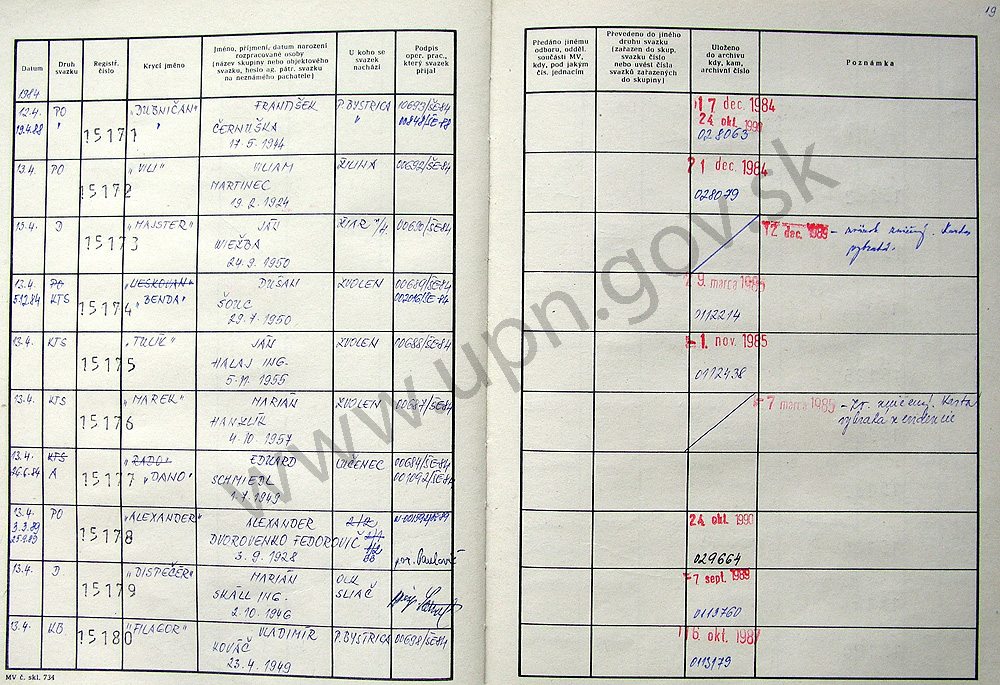 19
Datum
Druh svazku
Registr. číslo
Krycí jméno
Jméno, příjmení, datum narození rozpracované osoby (název skupiny nebo objektového svazku, heslo ag. pátr. svazku na neznámého pachatele)
U koho se svazek nachází
Podpis oper. prac., který svazek přijal
Předáno jinému odboru, odděl. součásti MV, kdy, pod jakým čís. jednacím
Převedeno do jiného druhu svazku (zařazen do skup. svazku číslo nebo uvést čísla svazků zařazených do skupiny)
Uloženo do archivu kdy, kam, archivní číslo
Poznámka
1984
12.4. PO 15171 "DUBNIČAN" FRANTIŠEK P.BYSTRICA 10693/ŠE-84 17 dec. 1984
19.4.88 " " ČERNUŠKA " 00848/ŠE-88 24 okt. 1990
17.5.1944 028063
13.4. PO 15172 "VILI" VILIAM ŽILINA 00692/ŠE-84 21 dec. 1984
MARTINEC
19.2.1924 028079
13.4. D 15173 "MAJSTER" JÁN ŽIAR n/H. 00690/ŠE-84 12 dec. 1985 - zničený. Karta
WEŽBA vybratá.
24.9.1950
13.4. PO 15174 DUŠAN ZVOLEN 00689/ŠE-84 29 marca 1985
5.12.84 KTS "BENDA" ŠOUC 002016/ŠE-84
29.7.1950 0112214
13.4. KTS 15175 "TULÍK" JÁN ZVOLEN 00688/ŠE-84 -1. nov. 1985
HALAJ ING.
5.11.1955 0112438
13.4. KTS 15176 "MAREK" MARIÁN ZVOLEN 00687/ŠE-84 -7 marca 1985 - zničený. Karta
HANZLÍK vybratá z evidencie
4.10.1957
13.4. KTS 15177 "RADO" EDUARD LUČENEC 00684/ŠE-84
26.6.84 A "DANO" SCHMIEDL 001092/ŠE-84
1.7.1949
13.4. PO 15178 "ALEXANDER" ALEXANDER 2/2 24 okt. 1990
3.3.89 DVOROVENKO FEDOROVIČ
3.9.1928 BB por. Pavlovič 029664
13.4. D 15179 "DISPEČER" MARIAN -7 sept. 1989
SKÁLL ING. SLIAČ
2.10.1946 0113760
13.4. KB 15180 "FILAGOR" VLADIMÍR P.BYSTRICA 00698/ŠE-84 16 okt. 1987
KOVÁČ
23.4.1949 0113179
MV č. skl. 734
www.upn.gov.sk